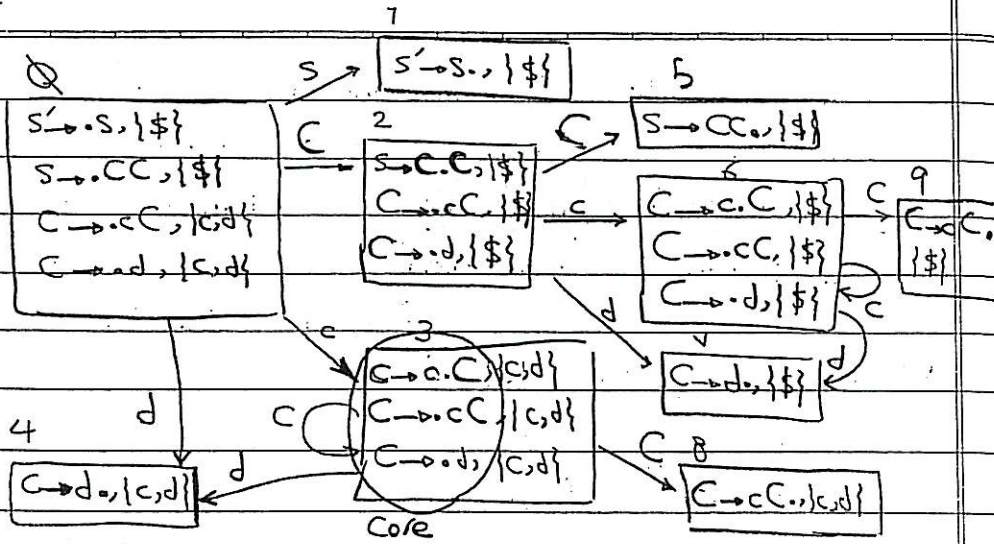 1
S'→S., {$}
S
0
S'→.S, {$}
S→.CC, {$}
C→.cC, {c,d}
C→.d, {c,d}
C
2
S→C.C, {$}
C→.cC, {$}
C→.d, {$}
C
5
S→CC., {$}
c
6
C→c.C, {$}
C→.cC, {$}
C→.d, {$}
c
C
9
C→cC.
{$}
d
d
C→d., {$}
c
3
C→c.C, {c,d}
C→.cC, {c,d}
C→.d, {c,d}
c
core
d
d
4
C→d., {c,d}
C
8
C→cC., {c,d}